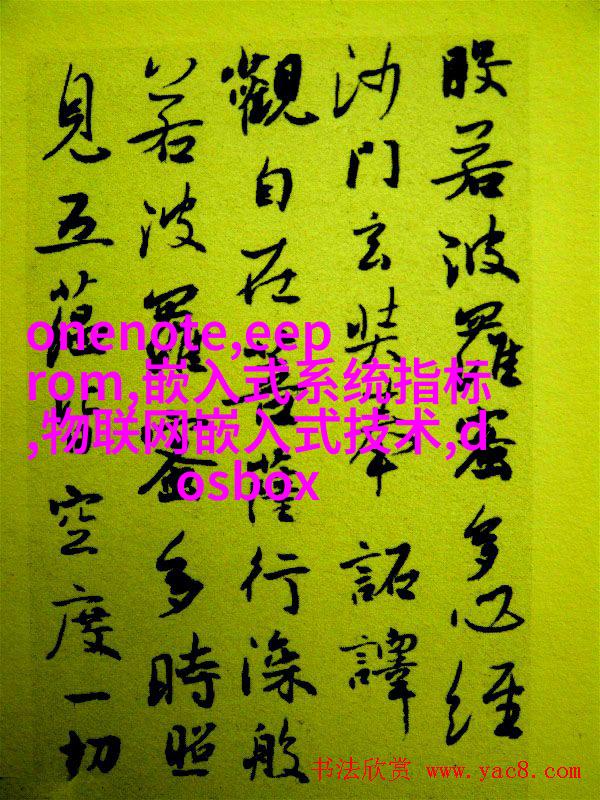 般若波羅蜜多心經
沙門玄奘奉 詔譯
觀自在菩薩行深般
若波羅蜜多時照
見五蘊皆空度一切
onenote,eep
rom,嵌入式系统指标
,物联网嵌入式技术,d
osbox
书法欣赏 www.yac8.com